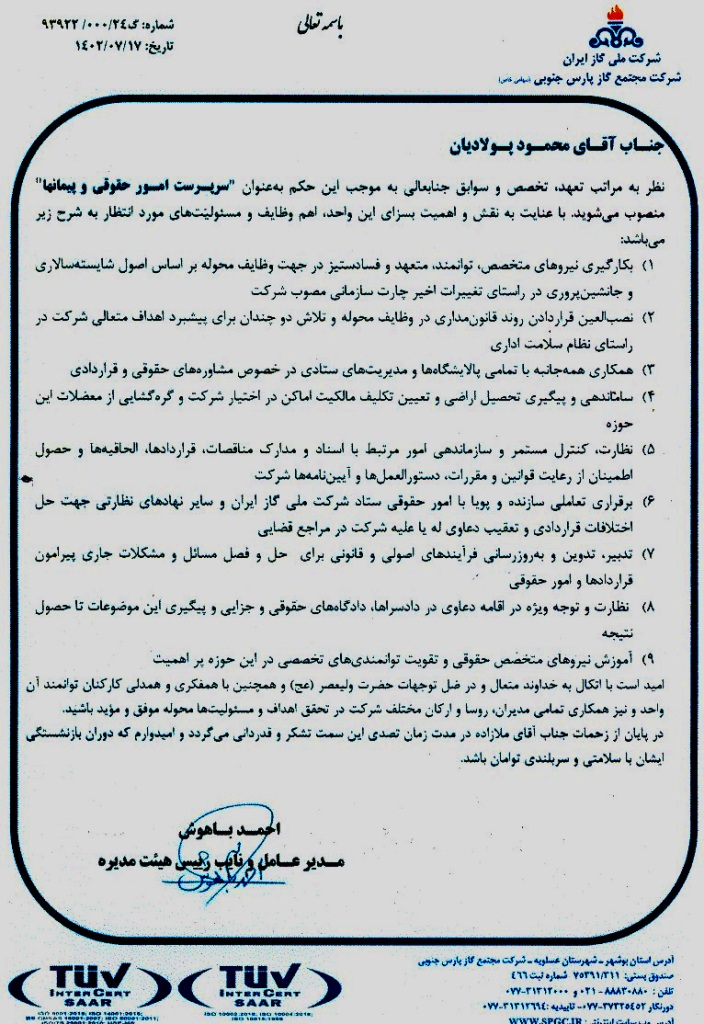 باسمه تعالی
شماره: گ۲۴/۰۰۰/ ۹۳۹۲۲
تاریخ: ۱۴۰۲/۰۷/۱۷
شرکت ملی گاز ایران
شرکت مجتمع گاز پارس جنوبی (سهامی خاص)
جناب آقای محمود پولادیان
نظر به مراتب تعهد، تخصص و سوابق جنابعالی به موجب این حکم به‌عنوان "سرپرست امور حقوقی و پیمانها"
منصوب می‌شوید. با عنایت به نقش و اهمیت بسزای این واحد، اهم وظایف و مسئولیت‌های مورد انتظار به شرح زیر
می‌باشد:
۱) بکارگیری نیروهای متخصص، توانمند، متعهد و فسادستیز در جهت وظایف محوله بر اساس اصول شایسته‌سالاری
و جانشین‌پروری در راستای تغییرات اخیر چارت سازمانی مصوب شرکت
۲) نصب‌العین قراردادن روند قانون‌مداری در وظایف محوله و تلاش دو چندان برای پیشبرد اهداف متعالی شرکت در
راستای نظام سلامت اداری
۳) همکاری همه‌جانبه با تمامی پالایشگاه‌ها و مدیریت‌های ستادی در خصوص مشاوره‌های حقوقی و قراردادی
۴) ساماندهی و پیگیری تحصیل اراضی و تعیین تکلیف مالکیت اماکن در اختیار شرکت و گره‌گشایی از معضلات این
حوزه
۵) نظارت، کنترل مستمر و سازماندهی امور مرتبط با اسناد و مدارک مناقصات، قراردادها، الحاقیه‌ها و حصول
اطمینان از رعایت قوانین و مقررات، دستورالعمل‌ها و آیین‌نامه‌ها شرکت
۶) برقراری تعاملی سازنده و پویا با امور حقوقی ستاد شرکت ملی گاز ایران و سایر نهادهای نظارتی جهت حل
اختلافات قراردادی و تعقیب دعاوی له یا علیه شرکت در مراجع قضایی
۷) تدبیر، تدوین و به‌روزرسانی فرآیندهای اصولی و قانونی برای حل و فصل مسائل و مشکلات جاری پیرامون
قراردادها و امور حقوقی
۸) نظارت و توجه ویژه در اقامه دعاوی در دادسراها، دادگاه‌های حقوقی و جزایی و پیگیری این موضوعات تا حصول
نتیجه
۹) آموزش نیروهای متخصص حقوقی و تقویت توانمندی‌های تخصصی در این حوزه پر اهمیت
امید است با اتکال به خداوند متعال و در ضل توجهات حضرت ولیعصر (عج) و همچنین با همفکری و همدلی کارکنان توانمند آن
واحد و نیز همکاری تمامی مدیران، روسا و ارکان مختلف شرکت در تحقق اهداف و مسئولیت‌ها محوله موفق و مؤید باشید.
در پایان از زحمات جناب آقای ملازاده در مدت زمان تصدی این سمت تشکر و قدردانی می‌گردد و امیدوارم که دوران بازنشستگی
ایشان با سلامتی و سربلندی توامان باشد.
احمد باهوش
مدیر عامل و نایب رییس هیئت مدیره
آدرس استان بوشهر - شهرستان عسلویه - شرکت مجتمع گاز پارس جنوبی
صندوق پستی: ۷۵۳۹۱/۳۱۱ شماره ثبت ۴۶۶
تلفن: ۸۸۸۳۰۸۸۰ - ۰۲۱ و ۳۱۳۱۲۰۰۰-۰۷۷
دورنگار ۳۷۳۲۵۴۵۲-۰۷۷ تاییدیه: ۳۱۳۱۲۶۹۴-۰۷۷
WWW.SPGC.IR
TÜV
INTERCERT
SAAR
TÜV
INTERCERT
SAAR